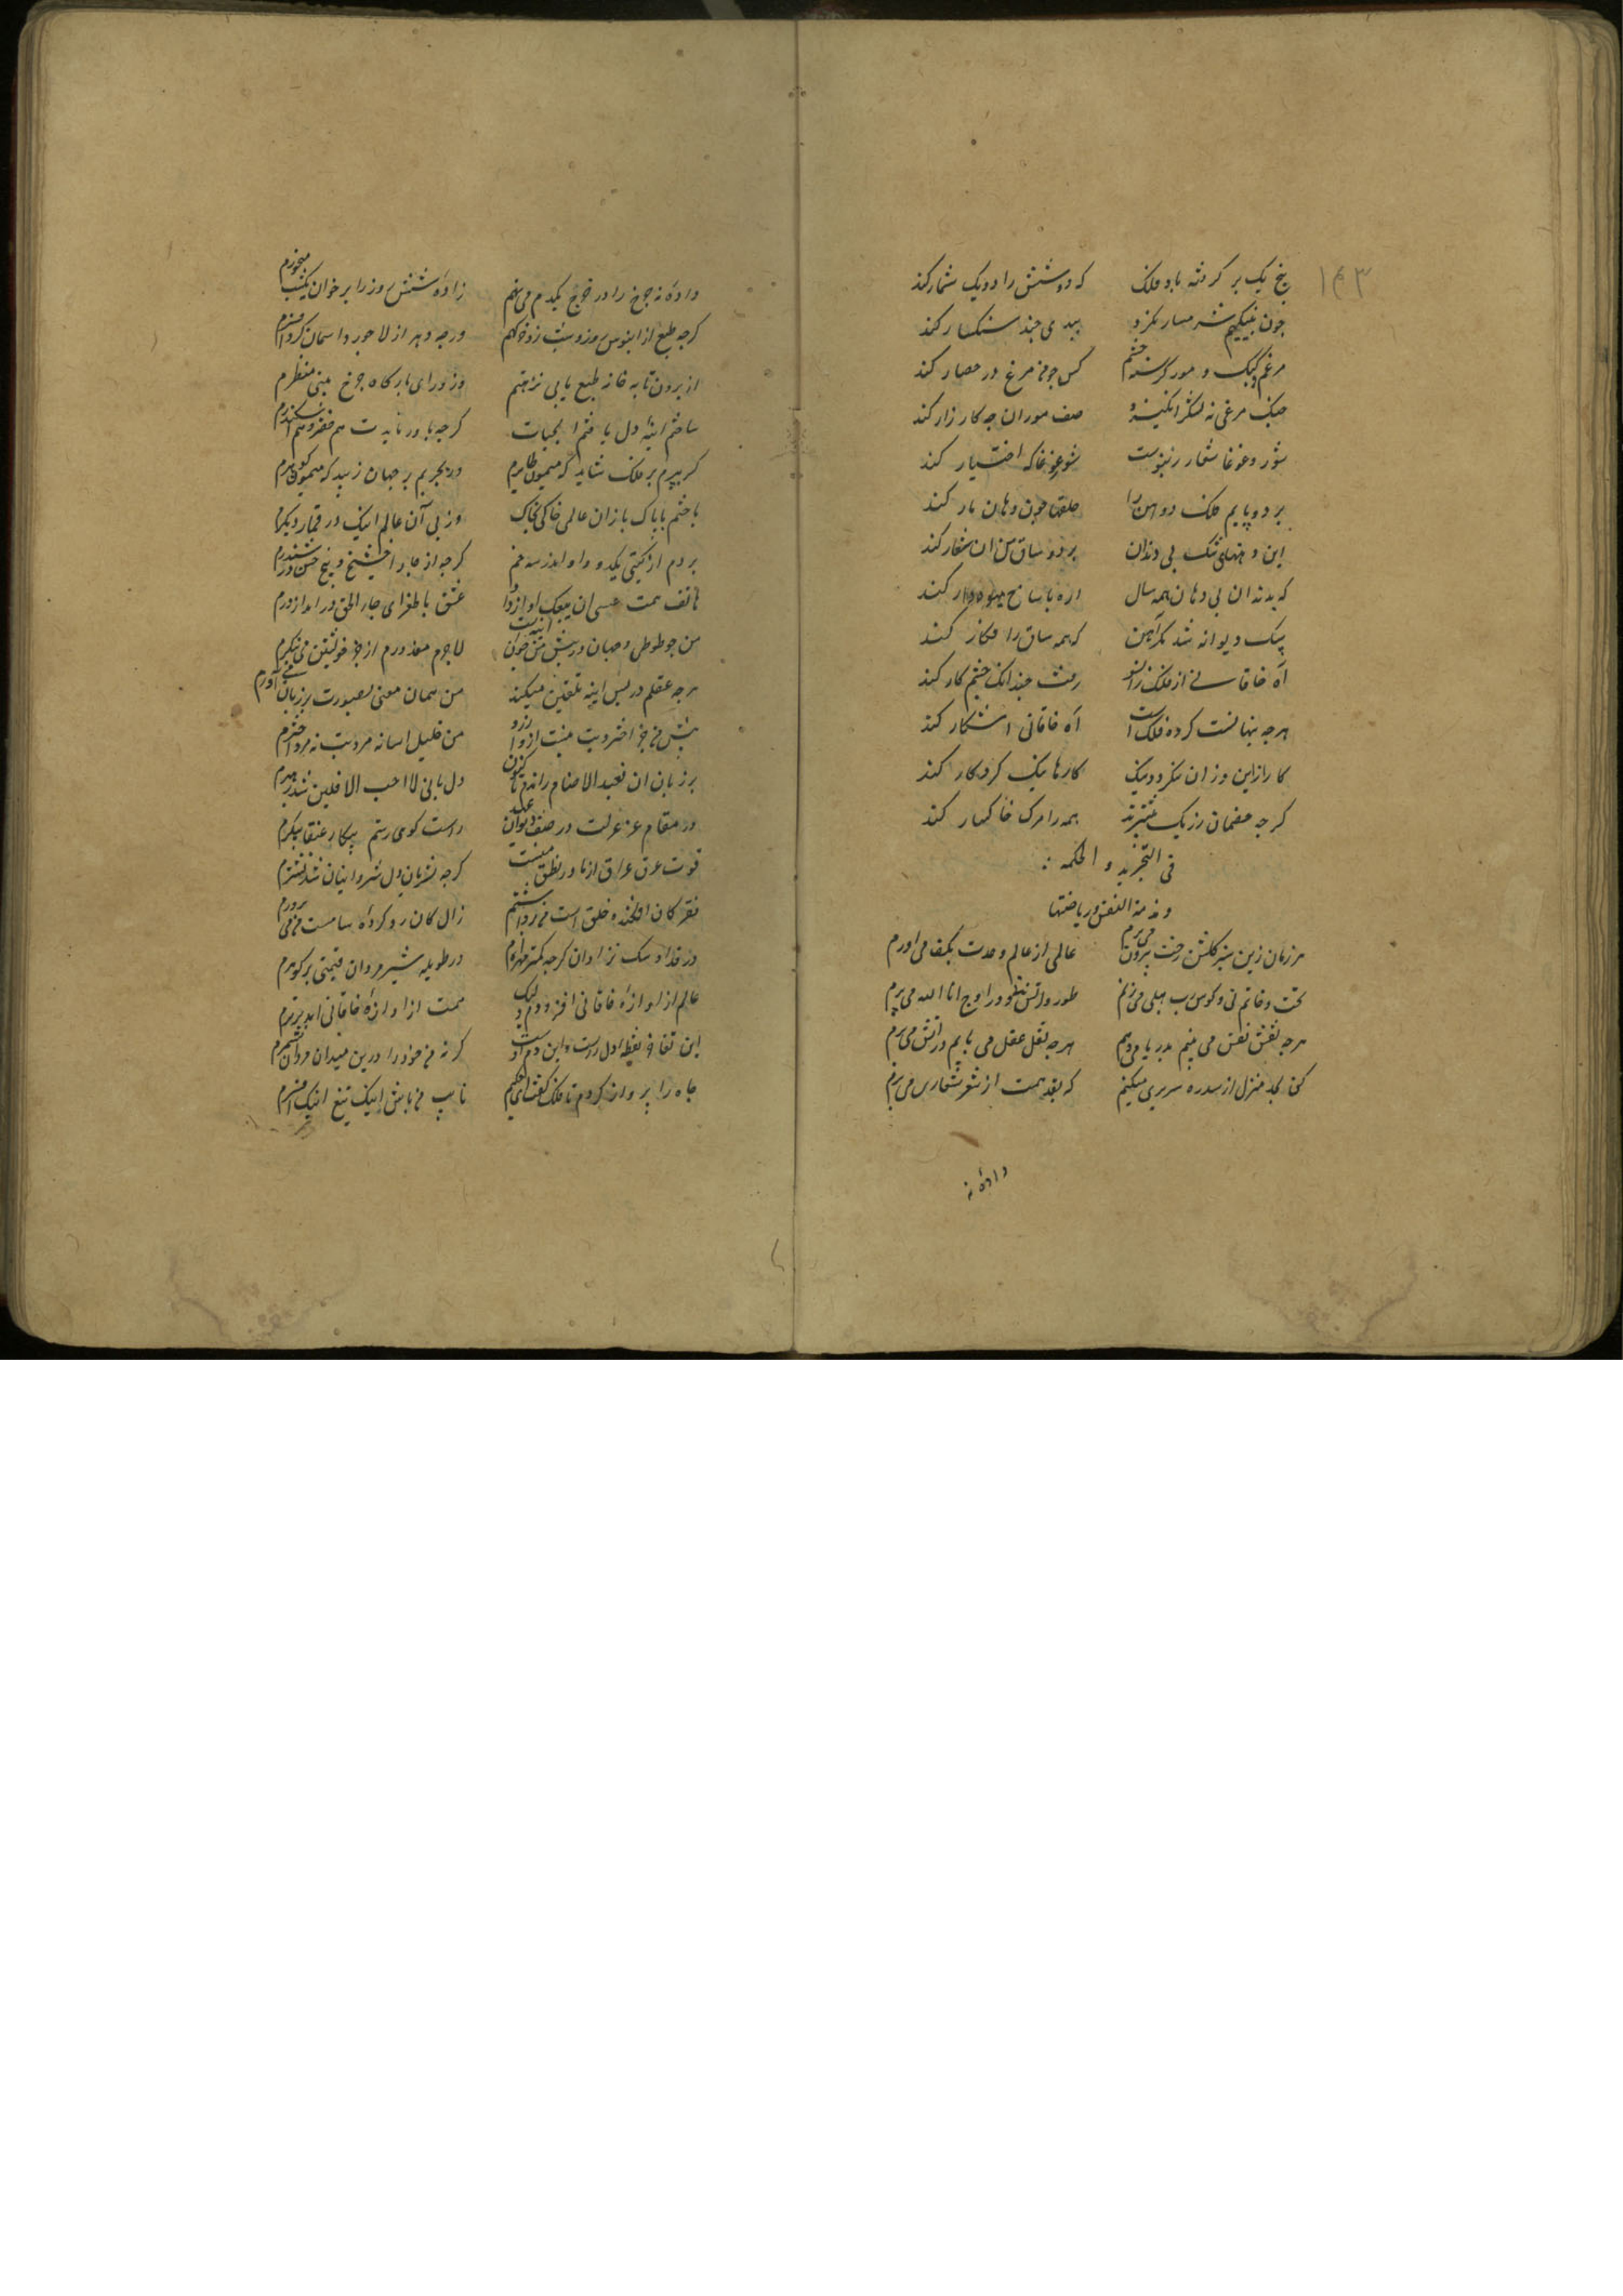 ۱۴۳
پنج یک بر کرفته باد فلک که دو شش را دو یک شمار کند
جون نبیکیم شرمسار مکرد بیدی جند سنکسار کند
مرغم کنک و مور کرسنه چشم کس جو من مرغ در حصار کند
جنک مرغی نه لشکر انکیزد صف موران جه کارزار کند
شور و غوغا شعار زنبورست شور غوغا که اختیار کند
بر دو پایم فلک دو اهن را حلقها جون دهان مار کند
این دهنهای تنک بی دندان بر دو ساق من ان شعار کند
که بدندان بی دهان همه سال اره با ساخ میوه دار کند
سک دیوانه شد مکر آهن که همه ساق را فکار کند
آه خاقانی از فلک زانسو رفت جندانک چشم کار کند
هرجه پنهانست کرده فلک است آه خاقانی اشکار کند
کار از این وزان نکردد نیک کارها نیک کردکار کند
کرجه خصمان رزیک بیشترند همه را مرک خاکسار کند
فی التجرید و الحکمه
و مذمة النفس و ریاضتها
هر زمان زین سبز کلشن رخت بیرون می برم عالمی از عالم وحدت بکف می اورم
تخت و خاتم نی و کوس رب هبلی می زنم طور و اتش نی و در اوج انا الله می پرم
هرجه نقش نفس می بینم بدریا می دهم هرجه نقل عقل می یابم در اتش می برم
که بحد منزل از سدره سریری میکنم که بقد همت از شعر شعاری می برم
داده نه
داده نه جرخ را در خرج یکدم می نهم زاده شش روز را بر خوان یکشب میخورم
کرجه طبع از ابنوس روز و شب زد خرکهم ورجه دهر از لاجورد اسمان کرد افسرم
از برون تابه خانه طبع یابی نزهتم وز ورای بارکاه جرخ بینی منظرم
ساختم اینه دل یافتم اب حیات کرجه باور نایدت هم خضر و هم اسکندرم
کر بپرم بر فلک شاید که میمون طایرم ور بجربم بر جهان زیبد که میمون کوهرم
باختم با پاک بازان عالم خاکی بخاک وز پی آن عالم اینک در قمار دیکرم
بردم از کیتی یکدو داو اندر سه ضرب کرجه از جار اخشیج و پنج حس در ششدرم
هاتف همت عسی ان یبعثک اواز داد عشق با طغرای جاء الحق در امد از درم
من جو طوطی و جهان در پیش من جون اینه ست لاجرم معذورم از جز خویشتن می ننکرم
هرجه عقلم در پس اینه تلقین میکند من همان معنی بصورت بر زبان می آورم
پیش من جز اختر و بت نیست از و ارزو من خلیل اسا نه مرد بت نه مرد اخترم
بر زبان ان نعبد الاصنام راندم تا کنون دل بانی لا احب الافلین شد رهبرم
در مقام عز عزلت در صف دیوان عهد راست کوی رستم پیکار عنقا پیکرم
قوت عرق عراق از ماده نطق منست کرجه شریان دل شروانیان شد نشترم
نقر کان افکنده خلق است من برداشتم زال کان رد کرده سامست من می پرورم
در قلاده سک نزادان کرجه کمتر مهره ام در طویله شیر مردان قیمتی تر کوهرم
عالم از اوازه خاقانی افروزم ولیک همت از اوازه خاقانی امد برترم
این تفاخر نقطه دل راست و این دم اوست کرنه من خود را درین میدان مردان نشمرم
جاه را پرواز کردم تا فلک کفت ای حکیم نایب من باش اینک تیغ اینک افسرم